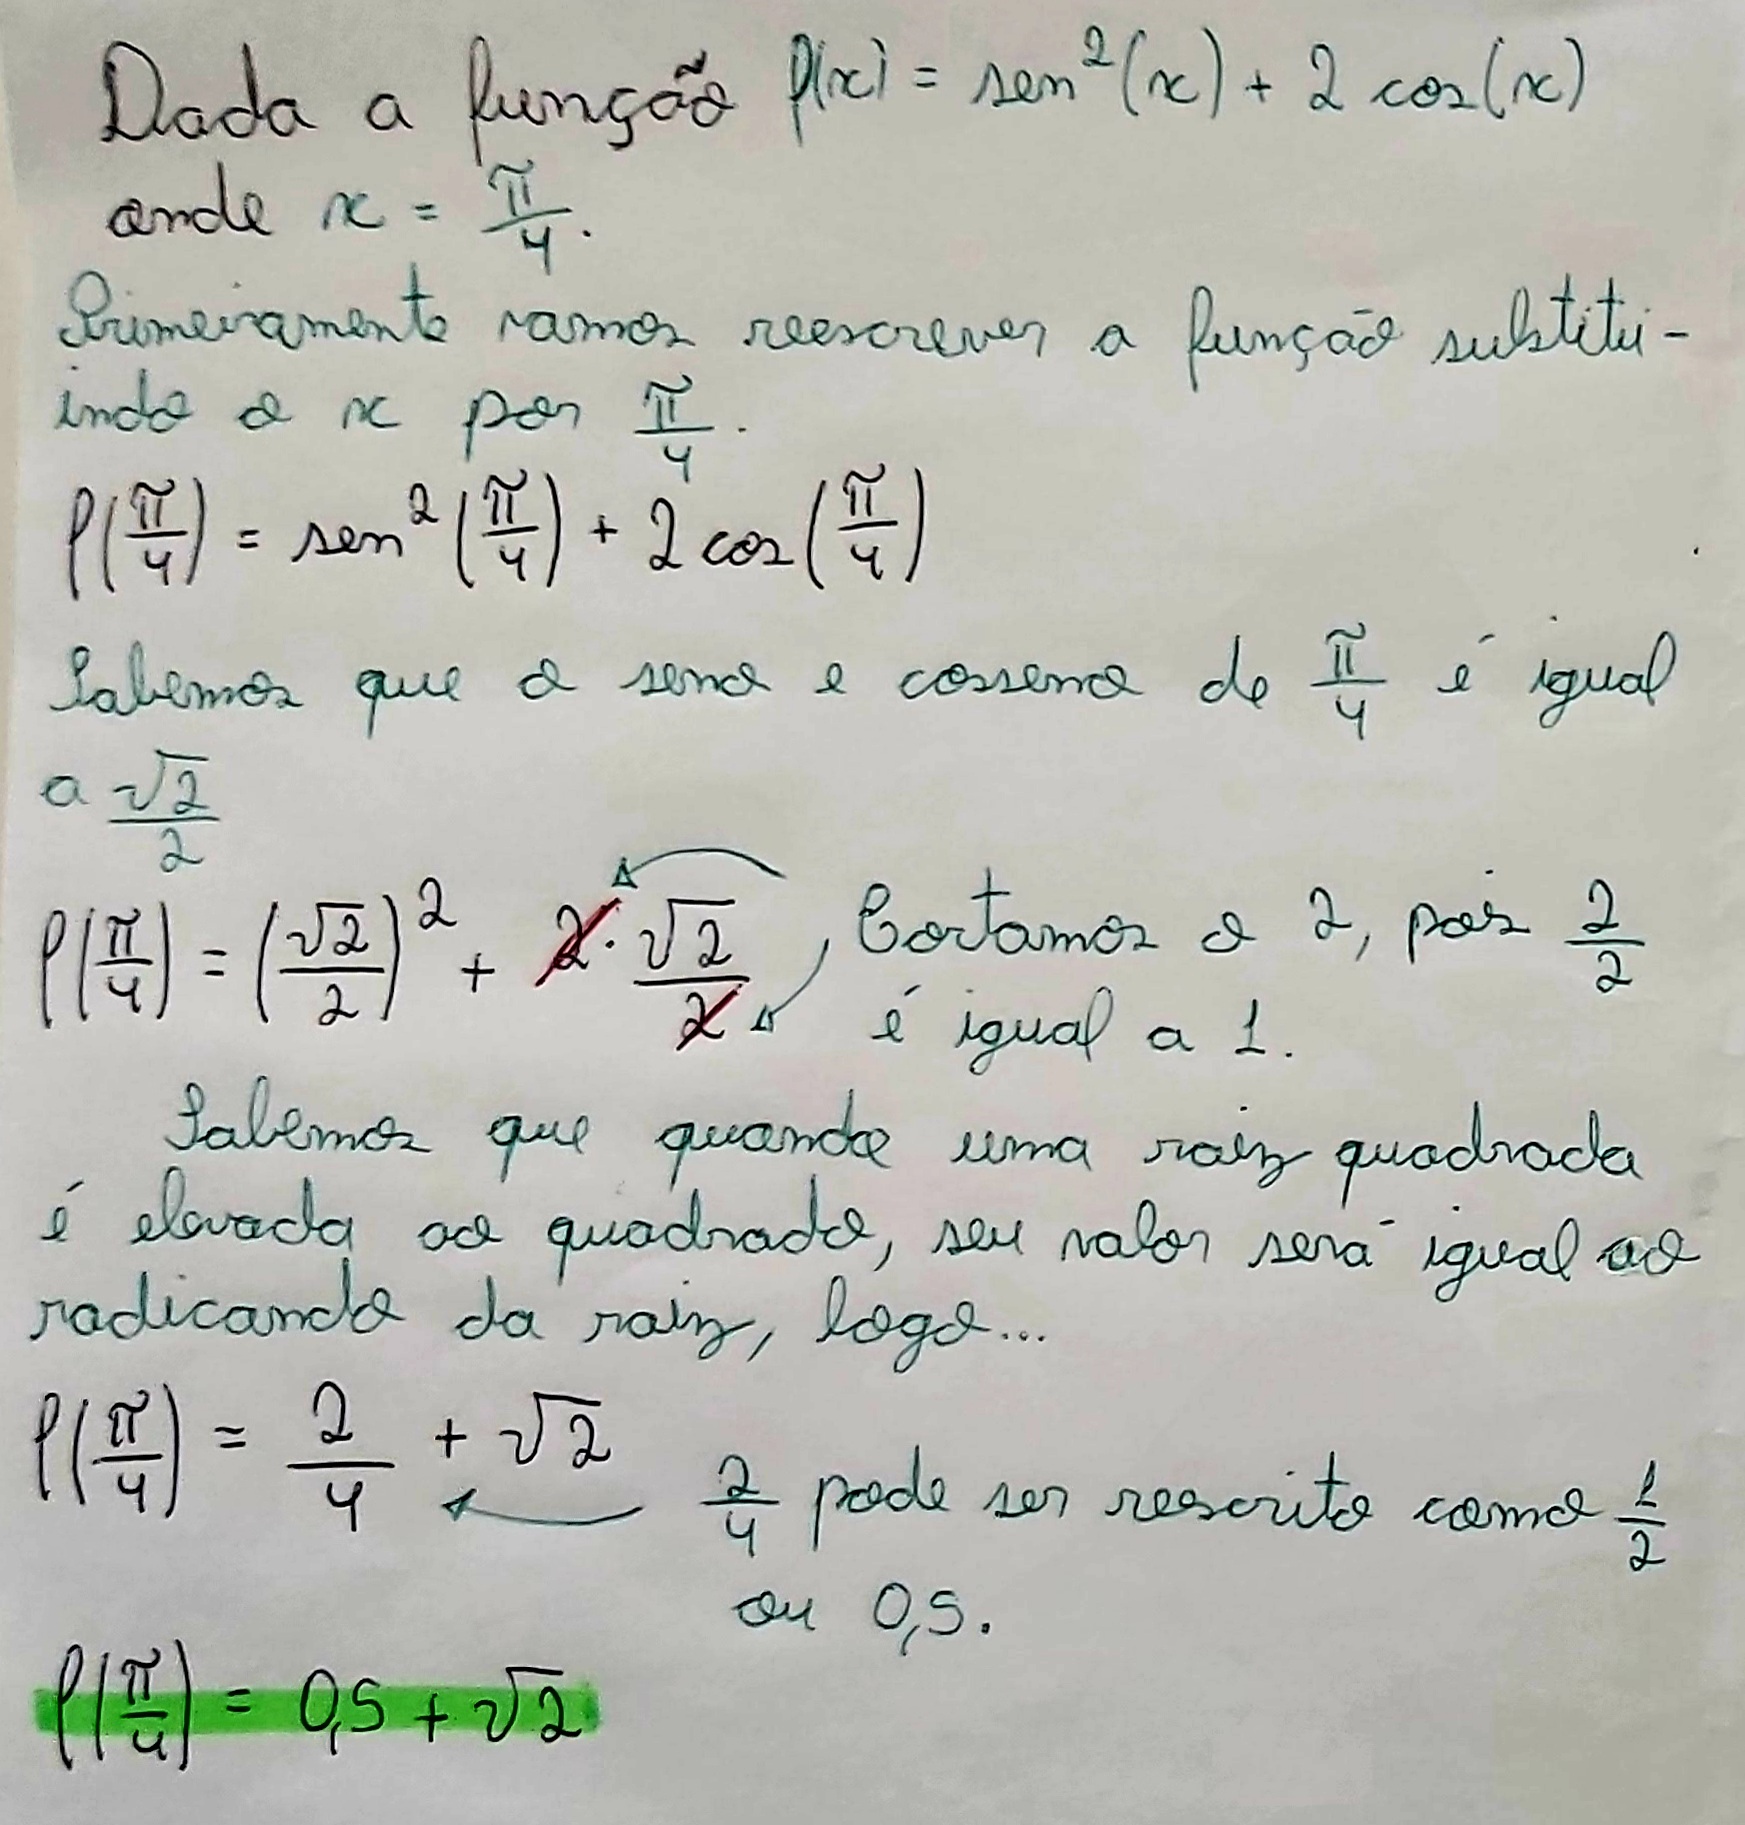 Dada a função f(x) = sen²(x) + 2 cos(x)
onde x = π/4.
Primeiramente vamos reescrever a função substitui-
indo o x por π/4.
f(π/4) = sen²(π/4) + 2 cos(π/4)
Sabemos que o seno e cosseno de π/4 é igual
a √2/2
f(π/4) = (√2/2)² + 2 · √2/2, Cortamos o 2, pois 2/2
é igual a 1.
Sabemos que quando uma raiz quadrada
é elevada ao quadrado, seu valor será igual ao
radicando da raiz, logo...
f(π/4) = 2/4 + √2
2/4 pode ser rescrito como 1/2
ou 0,5.
f(π/4) = 0,5 + √2